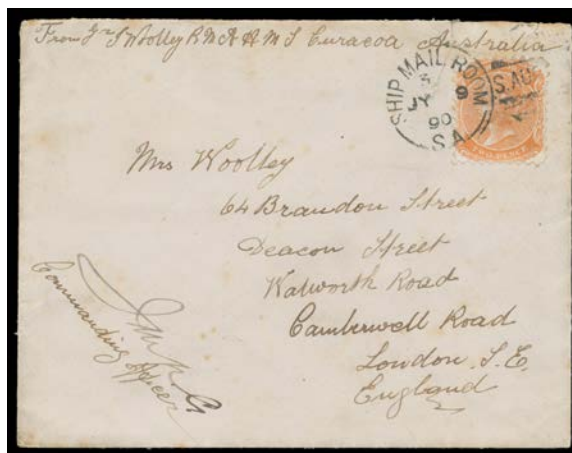 From Gr J Woolley R M A H M S Curacoa Australia
SHIP MAIL ROOM
JY 9
90
S.A
S.AU
Mrs Woolley
64 Brandon Street
Deacon Street
Walworth Road
Camberwell Road
London. S.E.
England
Commanding Officer